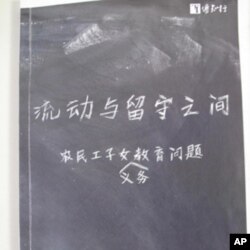 流动与留守之间
农民工子女教育问题
义务
AP